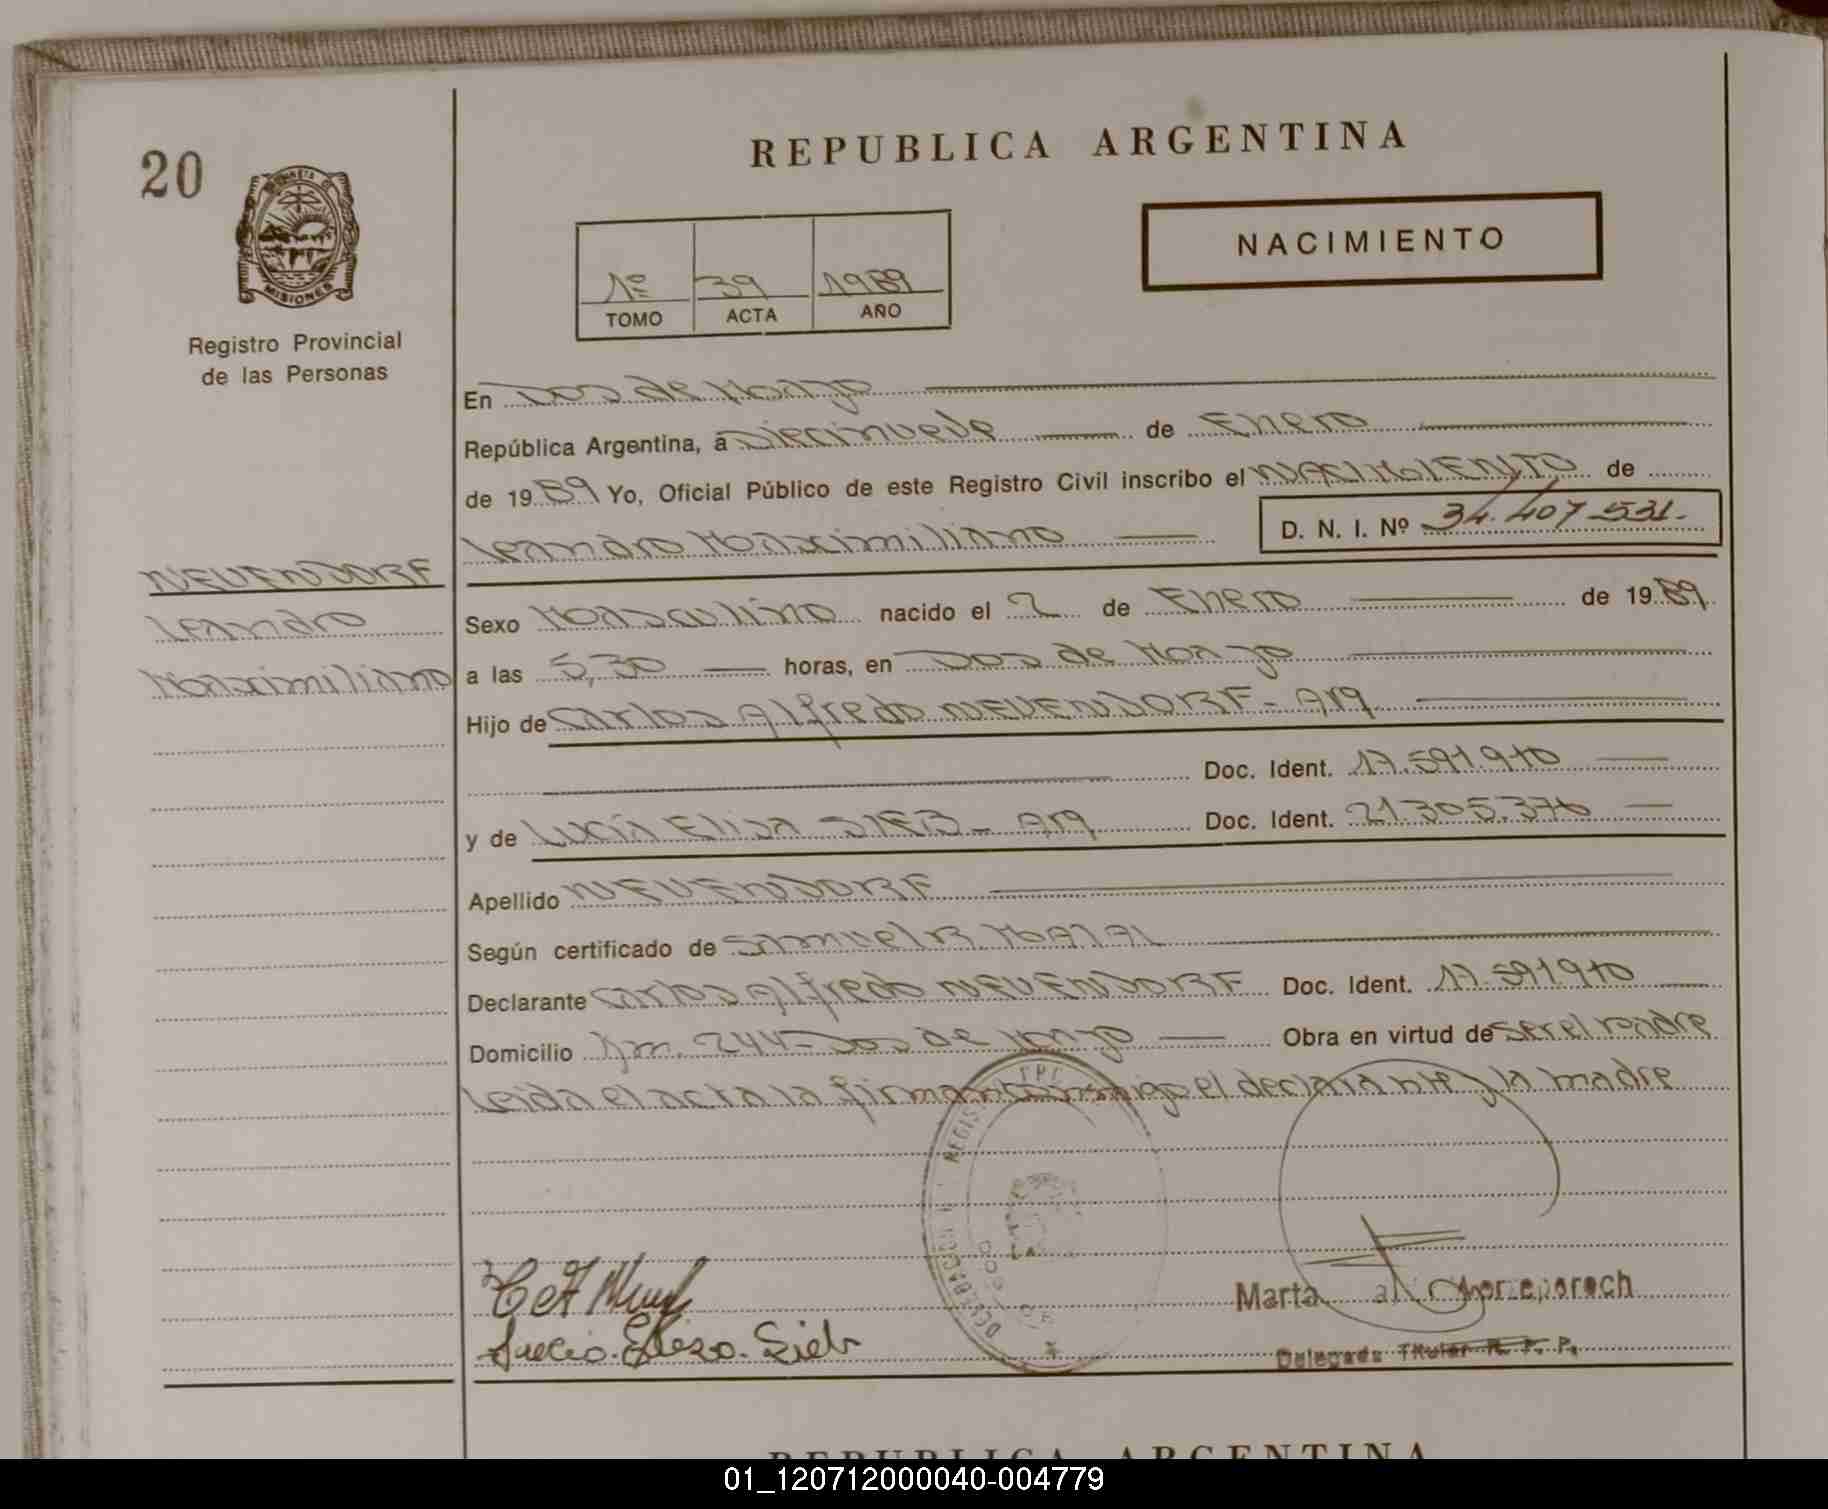 REPUBLICA ARGENTINA
20
MISIONES
Registro Provincial
de las Personas
1º 39 1989
TOMO ACTA AÑO
NACIMIENTO
En Dos de Mayo
República Argentina, a Diecinueve de Enero
de 1989 Yo, Oficial Público de este Registro Civil inscribo el NACIMIENTO de
Leandro Maximiliano D. N. I. Nº 34.407.531.
NEUENDORF
Leandro
Maximiliano
Sexo Masculino nacido el 2 de Enero de 1989
a las 5,30 horas, en Dos de Mayo
Hijo de Carlos Alfredo NEUENDORF - Arg
Doc. Ident. 17.591.970
y de Lucía Elisa SIEB - Arg Doc. Ident. 21.305.376
Apellido NEUENDORF
Según certificado de Samuel R.
Declarante Carlos Alfredo NEUENDORF Doc. Ident. 17.591.970
Domicilio Km. 244 - Dos de Mayo Obra en virtud de ser el padre
Leida el acta la firman conmigo el declarante y la madre
Lucia Elisa Sieb
Marta
Delegada Titular R. P. P.
REPUBLICA ARGENTINA
01_120712000040-004779